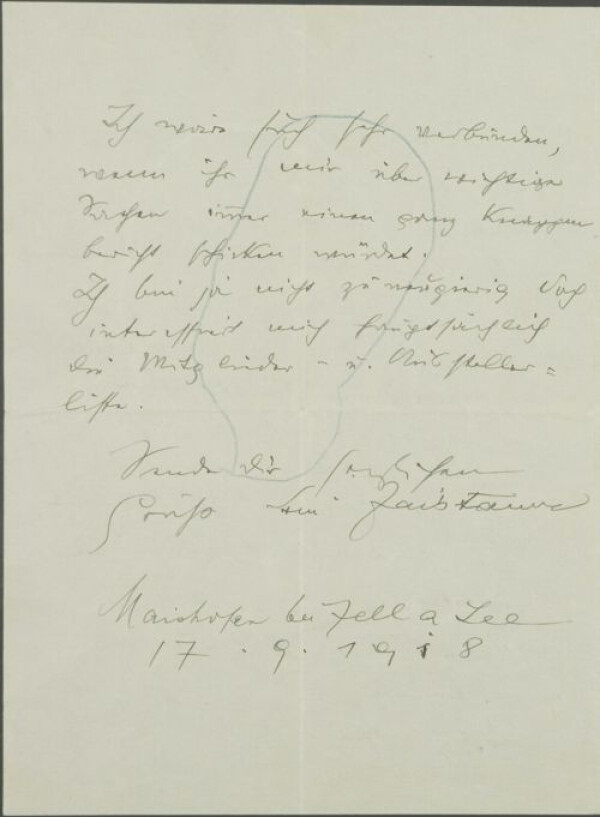 Ich wäre Euch sehr verbunden,
wenn ihr mir über wichtige
Sachen immer einen ganz knappen
bericht schicken würdet.
Ich bin ja nicht zu neugierig doch
interessiert mich hauptsächlich
die Mitglieder - u. Aussteller =
liste.
Sende dir herzlichen
Grüße dein Faistauer
Maishofen bei Zell a See
17 . 9 . 1918